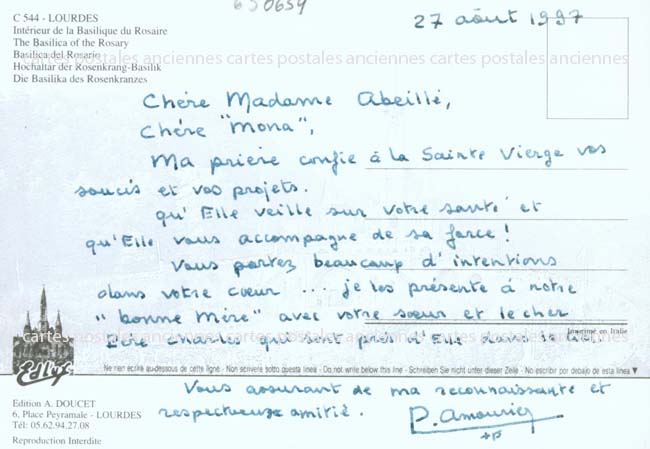 650659
C 544 - LOURDES
Intérieur de la Basilique du Rosaire
The Basilica of the Rosary
Basilica del Rosario
Hochaltar der Rosenkrang-Basilik
Die Basilika des Rosenkranzes
27 août 1997
cartes postales anciennes cartes postales anciennes cartes postales anciennes
Chère Madame Abeillé,
Chère "Mona",
Ma prière confie à la Sainte Vierge vos
soucis et vos projets.
qu'Elle veille sur votre santé et
qu'Elle vous accompagne de sa force !
Vous portez beaucoup d'intentions
dans votre cœur ... je les présente à notre
"bonne Mère" avec votre sœur et le cher
Père Charles qui sont près d'Elle dans le Ciel.
Imprimé en Italie
cartes postales anciennes cartes postales anciennes cartes postales anciennes
Ne rien écrire au-dessous de cette ligne - Non scrivere sotto questa linea - Do not write below this line - Schreiben Sie nicht unter dieser Zeile - No escribir por debajo de esta linea
Vous assurant de ma reconnaissante et
respectueuse amitié.
Edition A. DOUCET
6, Place Peyramale - LOURDES
Tél: 05.62.94.27.08
Reproduction Interdite